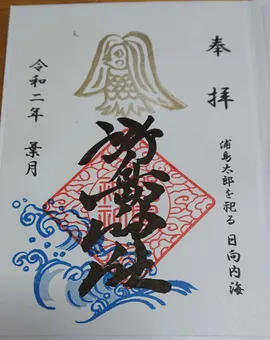 奉拝
浦島太郎を祀る 日向内海
野島神社
令和二年 葉月